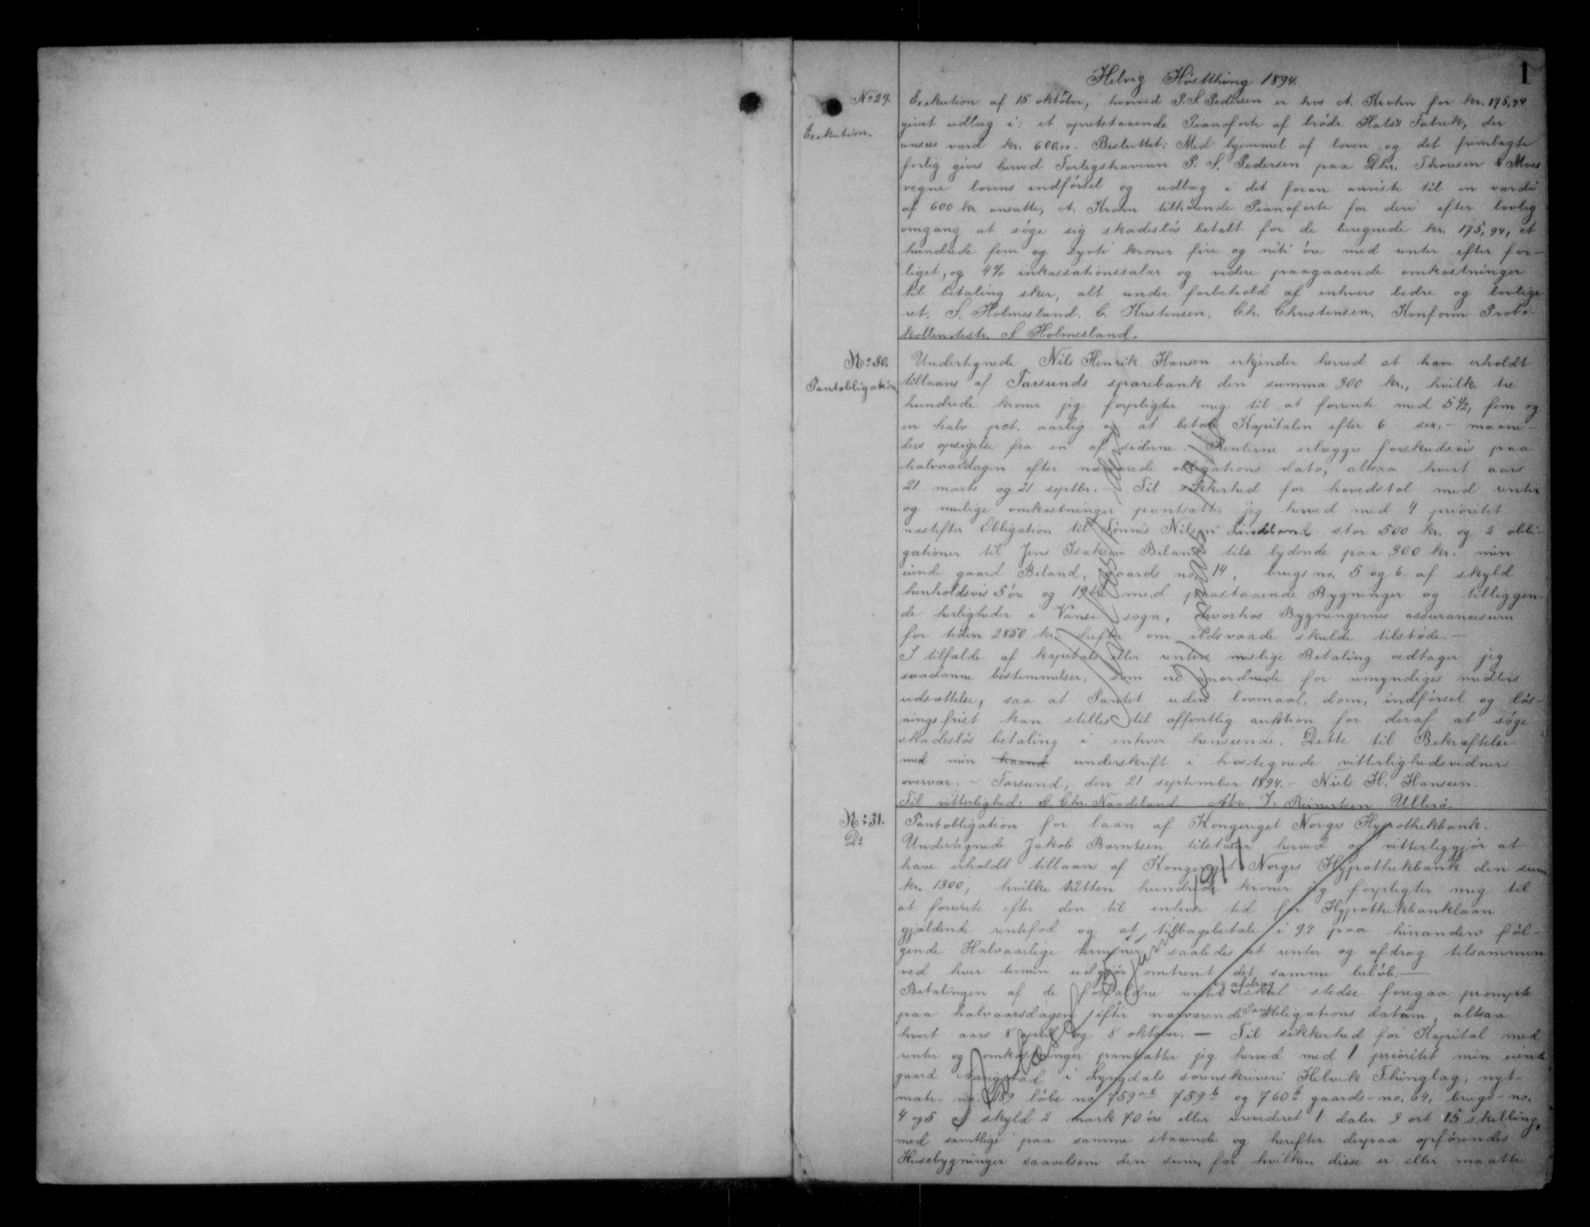 1
Helvig Høstthing 1894.
No 29.
Exekution.
Exekution af 15 oktober, hvorved P. S. Pedersen er hos A. Krohn for kr. 175,94
givet udlæg i: et opretstaaende Pianoforte af brødr. Hals's Fabrik, der
ansees værd kr. 600,00. Besluttet: Med hjemmel af loven og det fremlagte
forlig gives herved Forligshaveren P. S. Pedersen paa Dhr. Thorsen & Moes
vegne lovens indførsel og udlæg i det foran anviste til en værdi
af 600 kr ansatte, A. Krohn tilhørende Pianoforte for deri efter lovlig
omgang at søge sig skadesløs betalt for de beregnede kr. 175,94, et
hundrede fem og sytti kroner fire og niti øre med renter efter for-
liget, og 4% inkassationssalær og videre paagaaende omkostninger
til betaling sker, alt under forbehold af enhvers bedre og lovlige
ret. S. Holmesland. C. Kristensen. Chr. Christensen. Konform Proto-
kollen testr. S Holmesland.
No 30.
Pantobligation
Undertegnede Nils Henrik Hansen erkjender herved at have erholdt
tillaans af Farsunds sparebank den summa 300 kr., hvilke tre
hundrede kroner jeg forpligter mig til at forrente med 5 1/2, fem og
en halv pct. aarlig og at betale Kapitalen efter 6 - sex, - maane-
ders opsigelse fra en af siderne. Renterne erlægges forskudsvis paa
halvaarsdagen efter nærværende obligations dato, altsaa hvert aars
21 marts og 21 septbr. - Til sikkerhed for hovedstol med renter
og mulige omkostninger pantsætter jeg herved med 4 prioritet
næstefter Obligation til Tønnes Nilsen stor 500 kr. og 2 obli-
gationer til Jens Isaksen Biland tils. lydende paa 300 kr. min
eiende gaard Biland, gaards no. 14, brugs no. 5 og 6 af skyld
henholdsvis 5 øre og med paastaaende Bygninger og tilliggen-
de herligheder i Vanse sogn, hvorhos Bygningernes assurancesum
for tiden 2850 kr. hefter om ildsvaade skulde tilstøde. -
I tilfælde af kapitals eller renters mislige Betaling vedtager jeg
saadanne bestemmelser, som er anordnede for umyndiges midlers
udsættelse, saa at Pantet uden lovmaal, dom, indførsel og løs-
ningsfrist kan stilles til offentlig auktion for deraf at søge
skadesløs betaling i enhver henseende. Dette til Bekræftelse
med min haand underskrift i hostegnede vitterlighedsvidners
overvær. - Farsund, den 21 september 1894. - Niels H. Hansen.
Til vitterlighed: C. Chr. Naadeland. Abr. J. Reinertsen Ullerø.
No 31.
Do
Pantobligation for laan af Kongeriget Norges Hypothekbank.
Undertegnede Jakob Børntsen tilstaar herved og vitterliggjør at
have erholdt tillaans af Kongeriget Norges Hypothekbank den sum
kr. 1300, hvilke tretten hundrede kroner jeg forpligter mig til
at forrente efter den til enhver tid for Hypothekbanklaan
gjældende rentefod og at tilbagebetale i 94 paa hinanden føl-
gende Halvaarlige terminer saaledes at renter og afdrag tilsammen
ved hver termin udgjør omtrent det samme beløb. -
Betalingen af de forfaldne renter og afdrag skal stedse foregaa prompte
paa halvaarsdagen efter nærværende Pantobligations datum, altsaa
hvert aars 8 april og 8 oktober. - Til sikkerhed for Kapital med
renter og omkostninger pantsætter jeg herved med 1 prioritet min eiende
gaard i Lyngdals sorenskriveri Helvik Thinglag, nyt
matr. no. 159 løbe no 759 759 b og 760 gaards-no. 64, brugs-no.
4 og 5 af skyld 2 mark 70 øre eller urevideret 1 daler 3 ort 15 skilling,
med samtlige paa samme staaende og herefter derpaa opførendes
Husebygninger saavelsom den sum, for hvilken disse er eller maatte